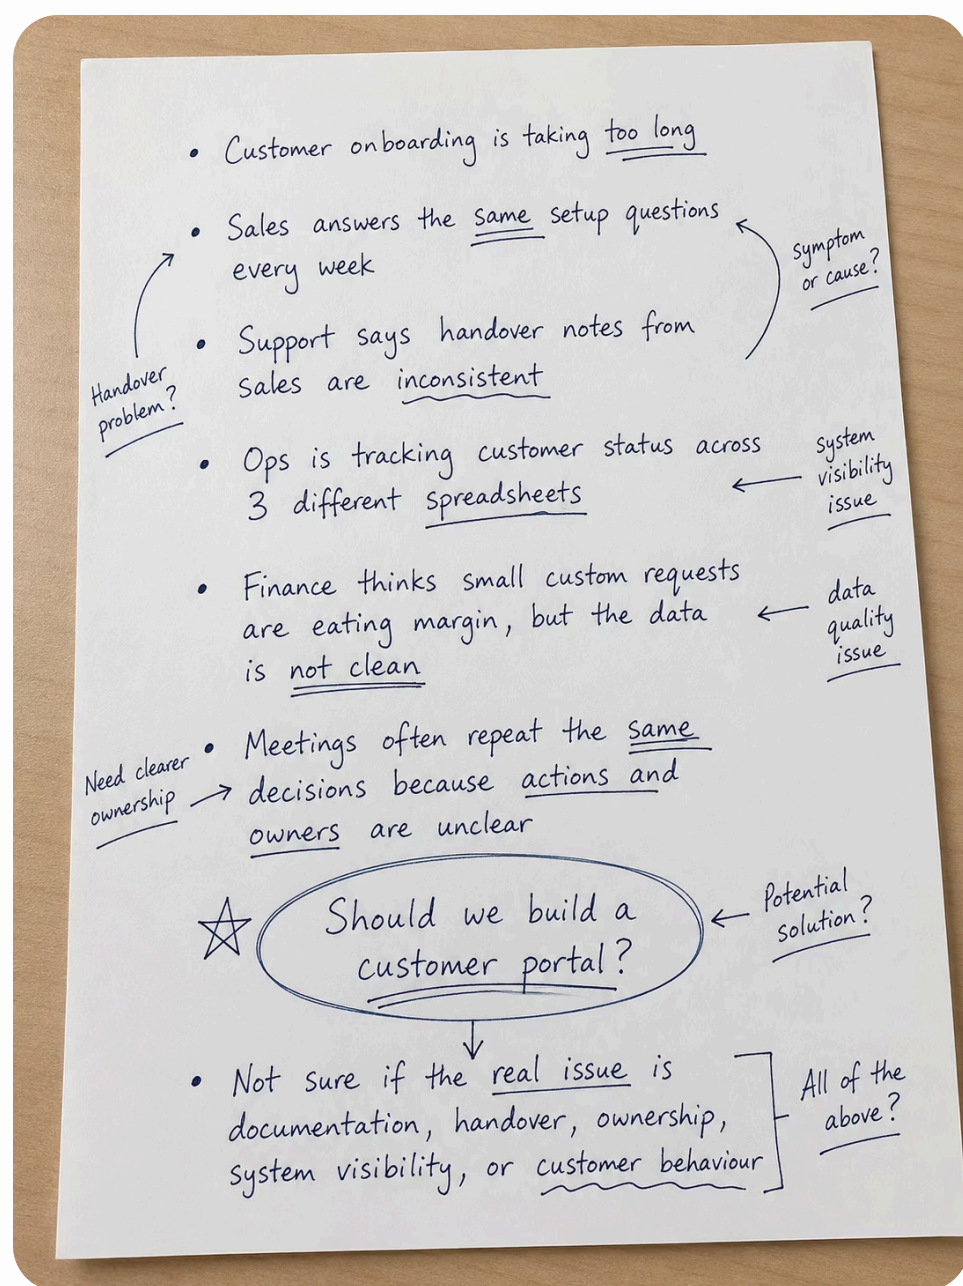 • Customer onboarding is taking too long
• Sales answers the same setup questions
every week
symptom
or cause?
• Support says handover notes from
sales are inconsistent
Handover
problem?
• Ops is tracking customer status across
3 different spreadsheets
system
visibility
issue
• Finance thinks small custom requests
are eating margin, but the data
is not clean
data
quality
issue
• Meetings often repeat the same
decisions because actions and
owners are unclear
Need clearer
ownership
Should we build a
customer portal?
Potential
solution?
• Not sure if the real issue is
documentation, handover, ownership,
system visibility, or customer behaviour
All of the
above?